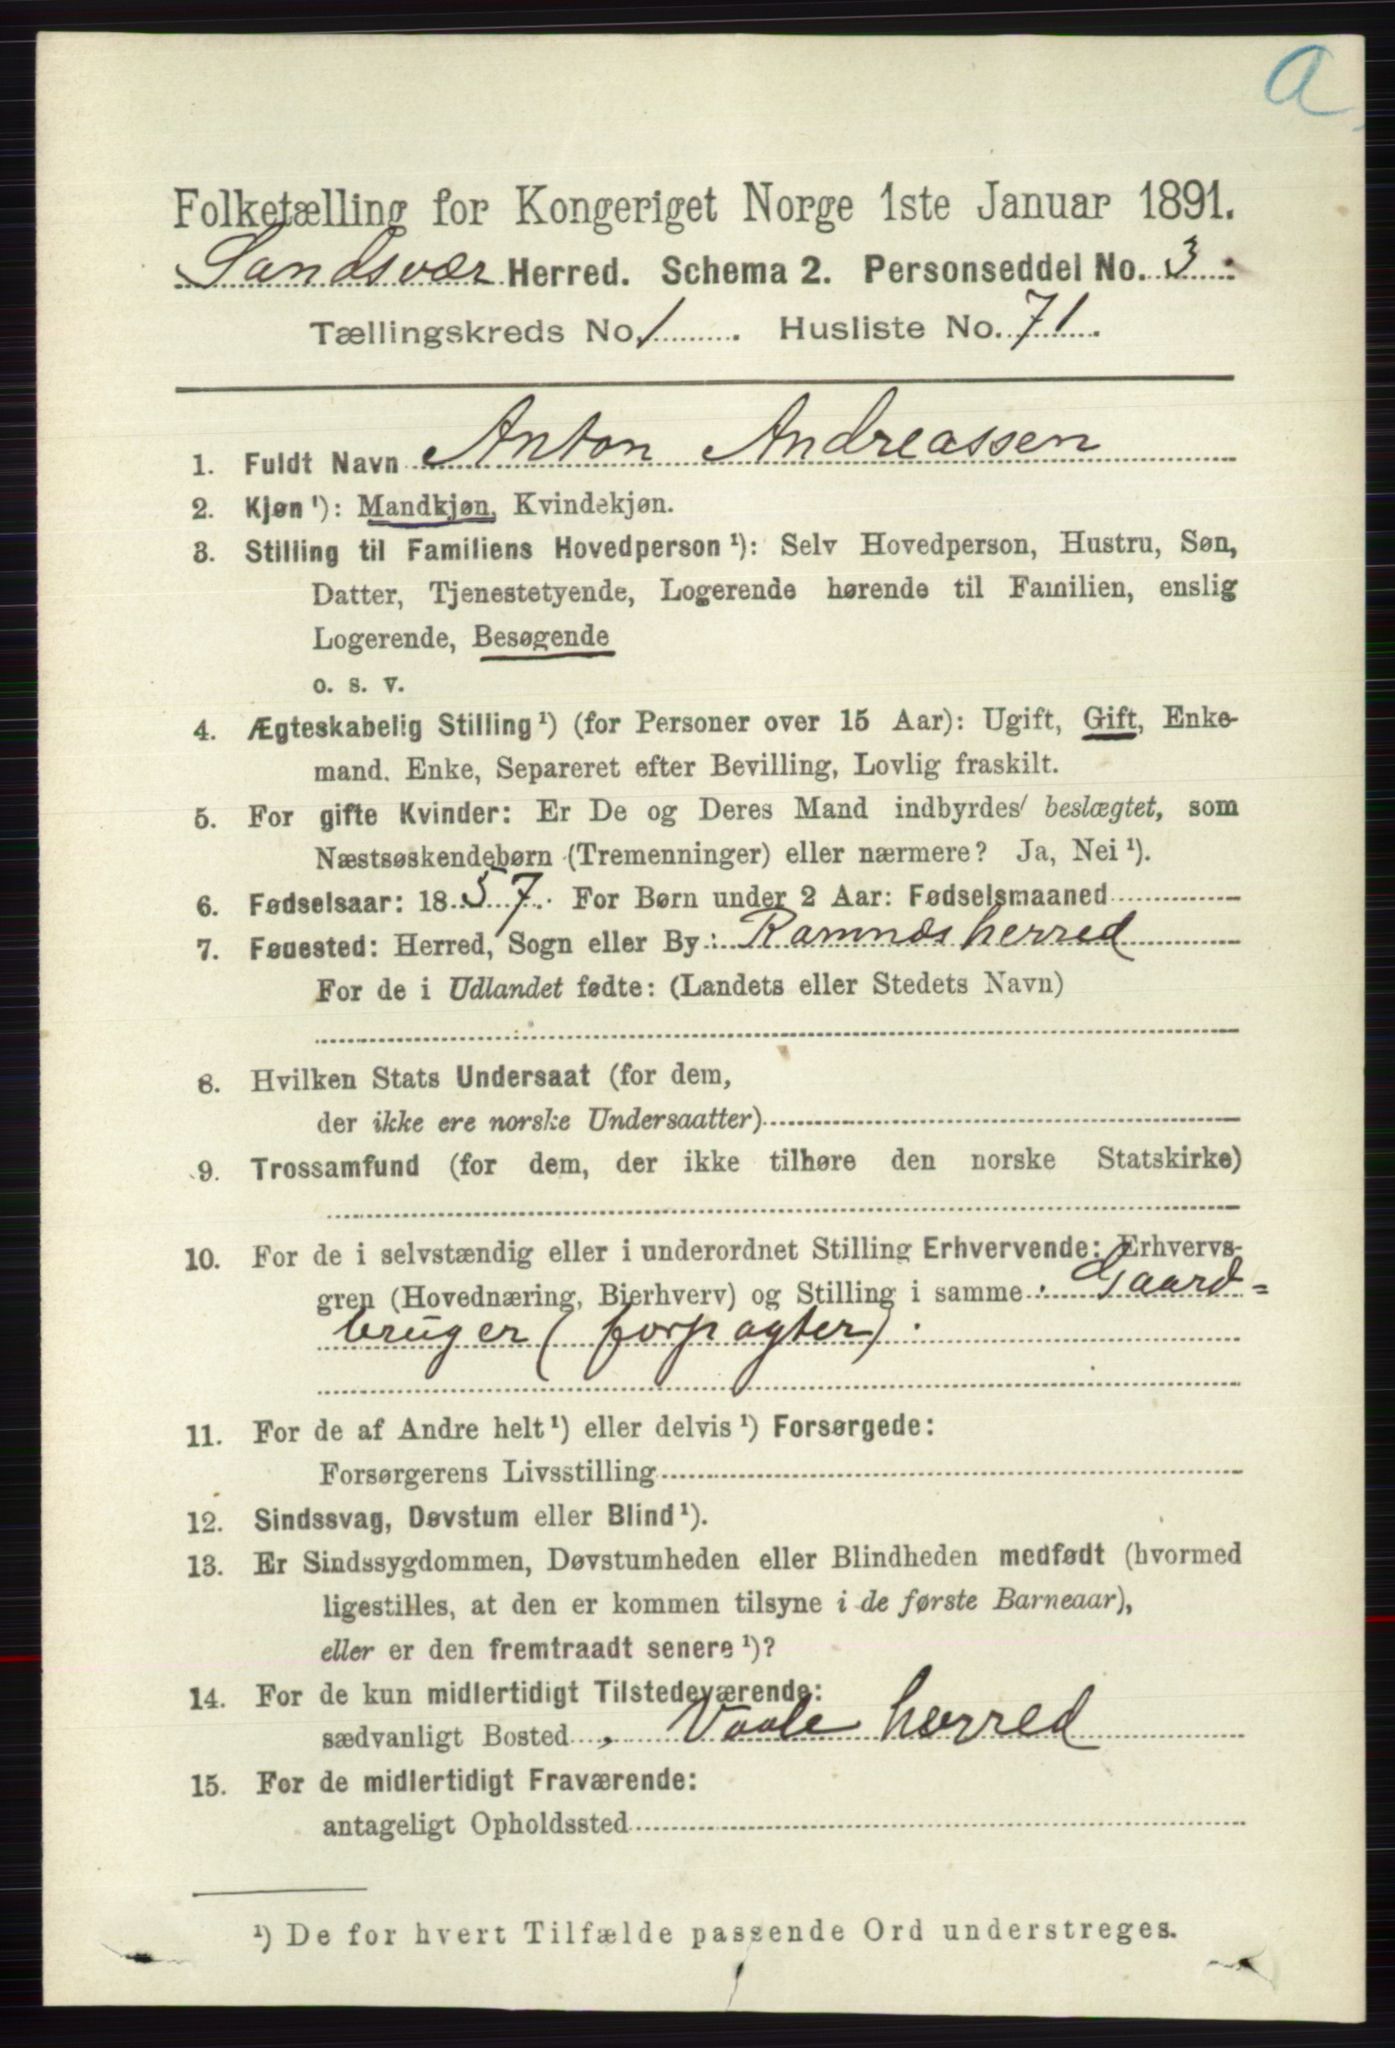 a
Folketælling for Kongeriget Norge 1ste Januar 1891.
Sandsvær Herred. Schema 2. Personseddel No. 3.
Tællingskreds No. 1. Husliste No. 71.
1. Fuldt Navn Anton Andreassen
2. Kjøn ¹): Mandkjøn, Kvindekjøn.
3. Stilling til Familiens Hovedperson ¹): Selv Hovedperson, Hustru, Søn,
Datter, Tjenestetyende, Logerende hørende til Familien, enslig
Logerende, Besøgende
o. s. v.
4. Ægteskabelig Stilling ¹) (for Personer over 15 Aar): Ugift, Gift, Enke-
mand, Enke, Separeret efter Bevilling, Lovlig fraskilt.
5. For gifte Kvinder: Er De og Deres Mand indbyrdes beslægtet, som
Næstsøskendebørn (Tremenninger) eller nærmere? Ja, Nei ¹).
6. Fødselsaar: 1857. For Børn under 2 Aar: Fødselsmaaned
7. Føuested: Herred, Sogn eller By: Ramnæs herred
For de i Udlandet fødte: (Landets eller Stedets Navn)
8. Hvilken Stats Undersaat (for dem,
der ikke ere norske Undersaatter)
9. Trossamfund (for dem, der ikke tilhøre den norske Statskirke)
10. For de i selvstændig eller i underordnet Stilling Erhvervende: Erhvervs-
gren (Hovednæring, Bierhverv) og Stilling i samme Gaard=
bruger (forpagter).
11. For de af Andre helt ¹) eller delvis ¹) Forsørgede:
Forsørgerens Livsstilling
12. Sindssvag, Døvstum eller Blind ¹).
13. Er Sindssygdommen, Døvstumheden eller Blindheden medfødt (hvormed
ligestilles, at den er kommen tilsyne i de første Barneaar),
eller er den fremtraadt senere ¹)?
14. For de kun midlertidigt Tilstedeværende:
sædvanligt Bosted Vaale herred
15. For de midlertidigt Fraværende:
antageligt Opholdssted
¹) De for hvert Tilfælde passende Ord understreges.